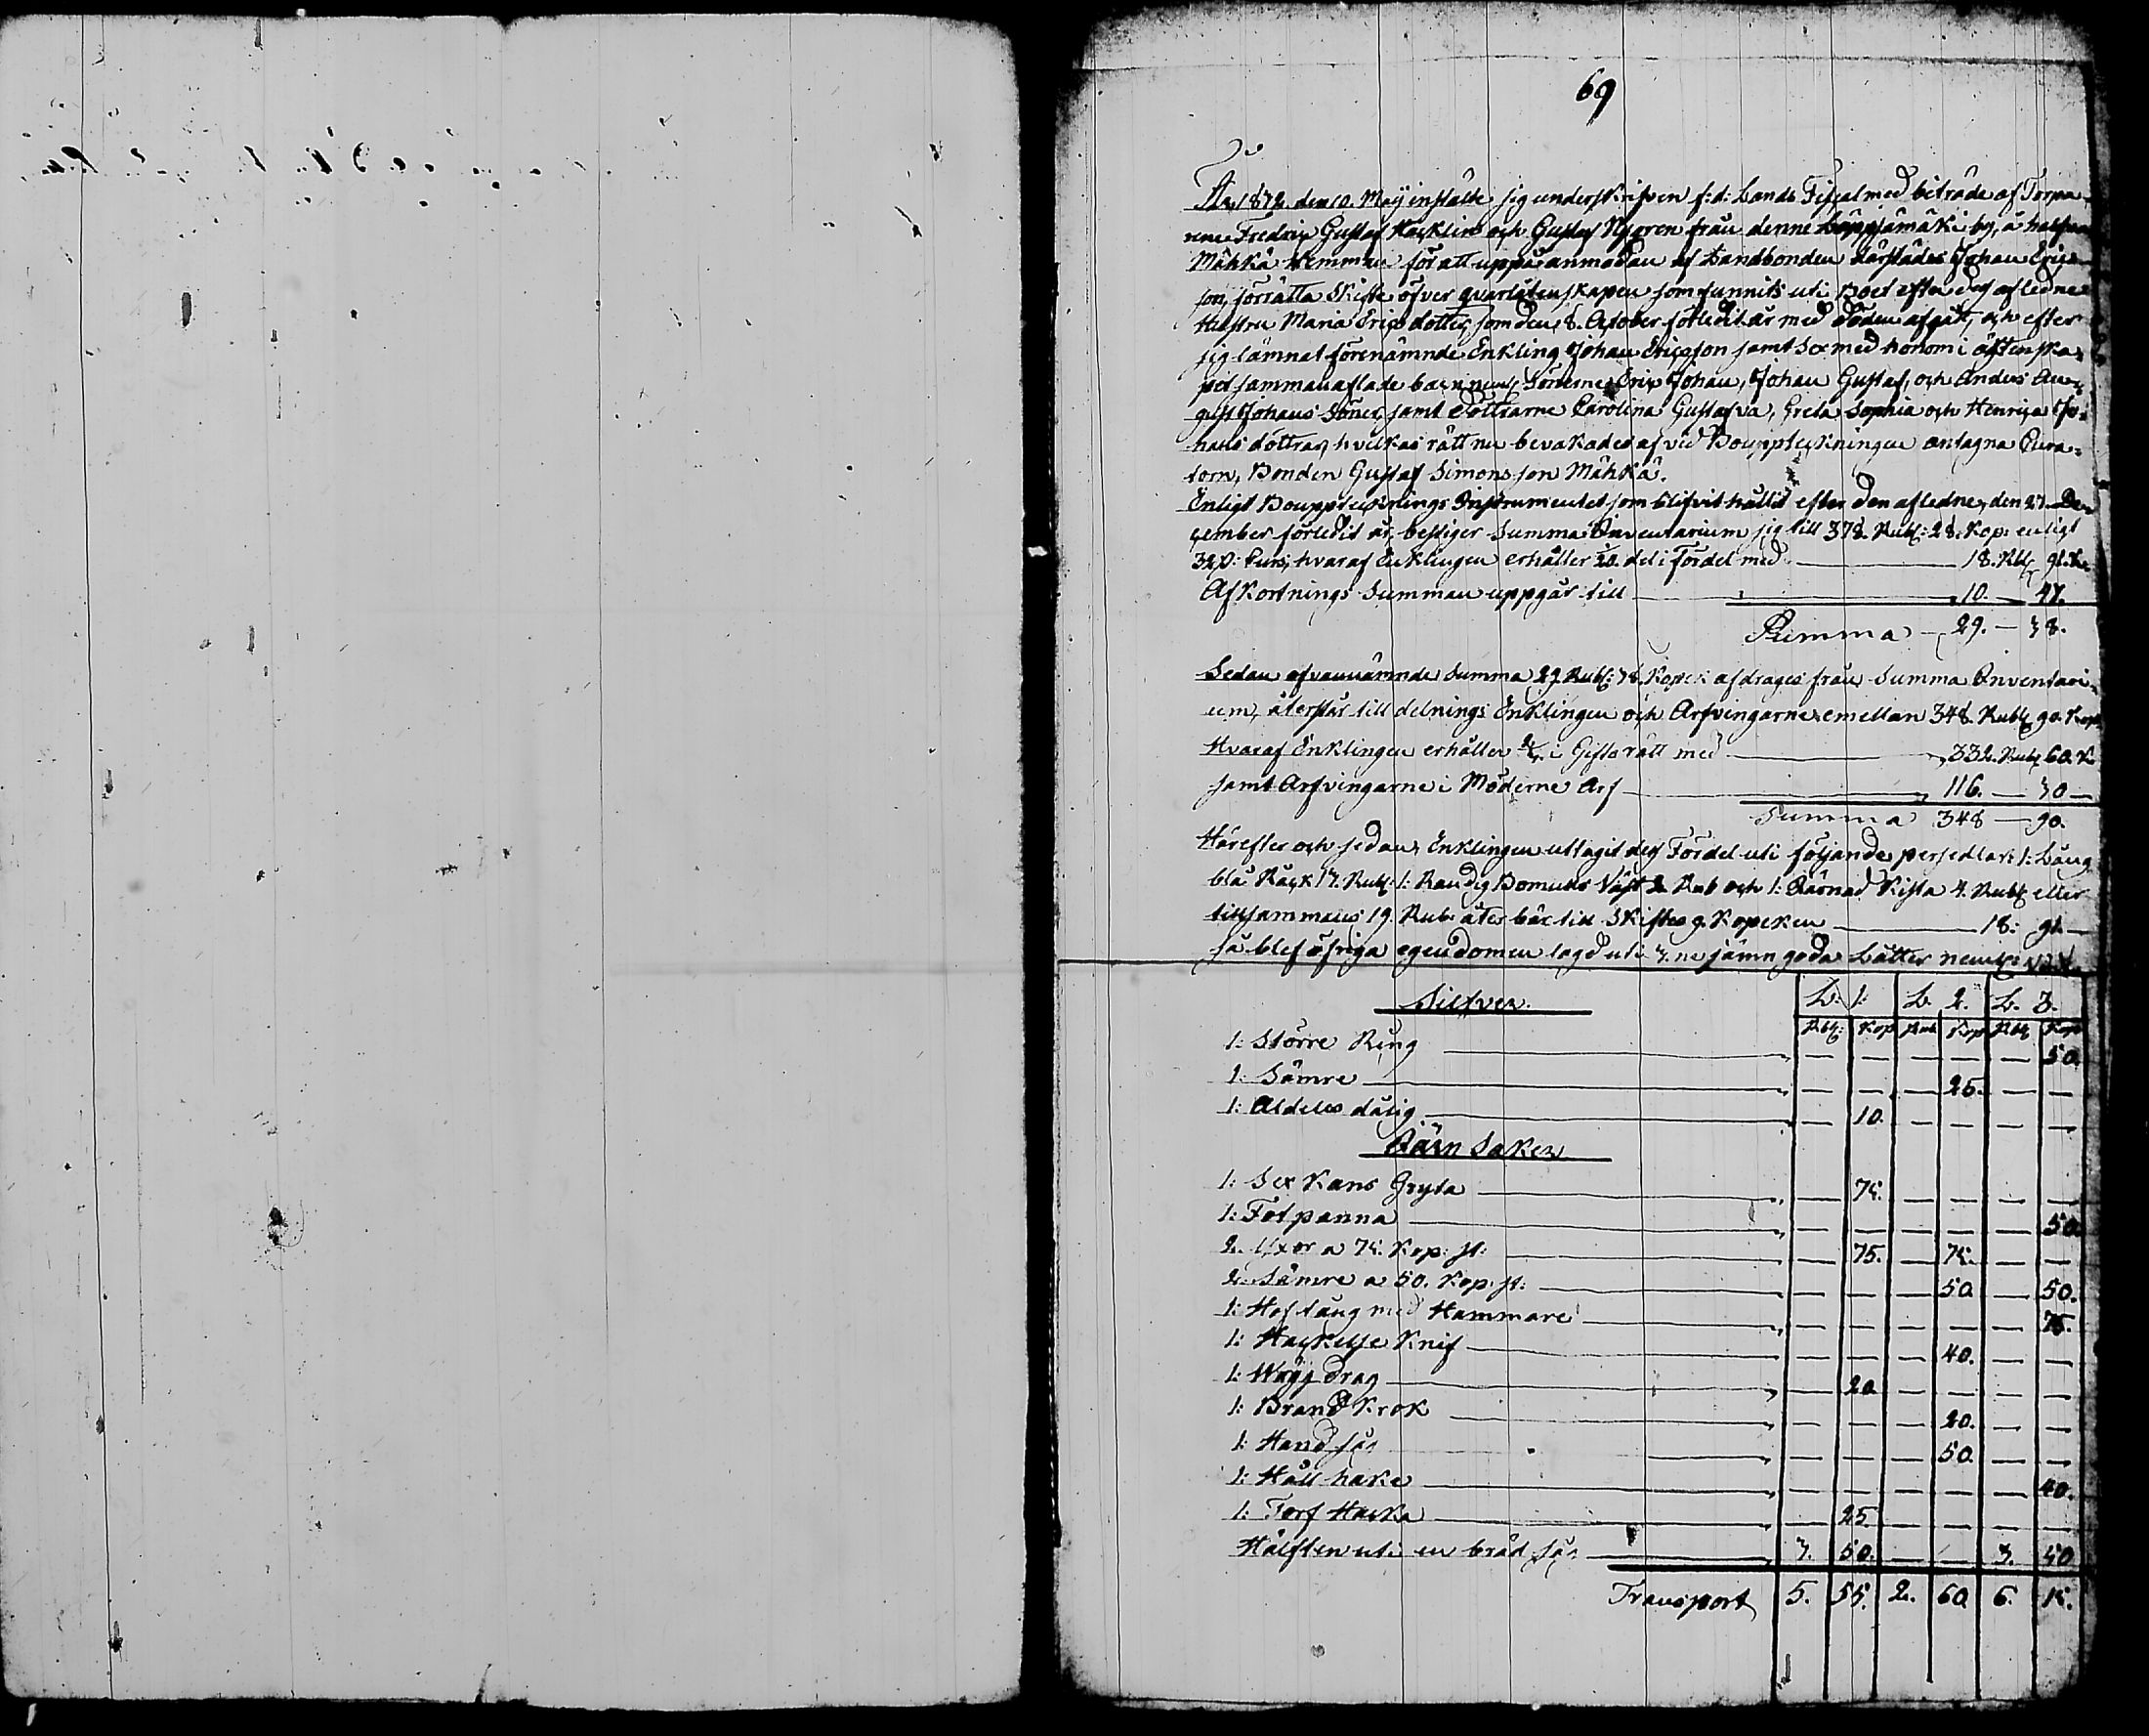 69
År 1872. den 10. Maij instälte sig underskrifven f:d: Lands Fiscal med biträde af Torpa-
rene Fredric Gustaf Häcklin och Gustaf Nygren från denne Läppämäki by, å halfva
Mähkä Hemman för att uppå anmodan af Landbonden därstädes Johan Erics-
son, förrätta Skifte öfver qvarlåtenskapen som funnits uti Boet efter dess aflednes
Hustru Maria Erics dotter, som den 8. October förledit år med döden afgått, och efter
sig lämnat förenämnde Enkling Johan Ericsson samt Sex med honom i äktenska-
pet sammanaflade barn neml: Sönerne Eric Johan, Johan Gustaf, och Anders Au-
gust Johans Söner, samt Döttrarne Carolina Gustafva, Greta Sophia och Henrica Jo-
hans döttrar, hvilkas rätt nu bevakades af vid Bouppteckningen antagna Cura-
torn, Bonden Gustaf Simonsson Mähkä.
Enligt Boupptecknings Instrumentet som blifvit hållit efter den aflednes, den 27. De-
cember förledit år, bestiger Summa Inventarium sig till 378. Rubl: 28. Kop: enligt
hvaraf Enklingen erhåller 1/20. del i Fördel med 18. Rbl 91. K.
Afkortnings Summan uppgår till 10. — 47.
Summa — 29. — 38.
Sedan ofvannämnde Summa 29 Rubl: 38. Kopek afdrages från Summa Inventari-
um, återstår till delnings Enklingen och Arfvingarne emellan 348. Rubl 90. Kop
Hvaraf Enklingen erhåller 2/3. i Giftorätt med 232. Rub 60. K
samt Arfvingarne i Möderne Arf 116. — 30 —
Summa 348 — 90.
Härefter och sedan Enklingen uttagit dess Fördel uti följande persedlar: 1: Lång
blå Räck 13. Rubl: 1: Randig Bomulls Väst 2 Rub och 1: Järnad Kista 4. Rubl eller
tillsammans 19. Rub: åter bär till Skiftes 9. Kopeken 18: 91. —
så blef öfriga egendomen lagd uti 3.ne jämn goda Lätter neml:
Silfver. L: 1: L. 2. L. 3.
Rbl: Kop Rub Kop Rbl Kop
1: Större Ring — — — — — 50.
1: Sämre — — — 25. — —
1: Aldeles dålig — 10. — — — —
Järn Saker
1: Sex Kans Gryta — 75. — — — —
1: Fotpanna — — — — — 50.
2. Yxor a 75. Kop: st: — 75. — 75. — —
2. Sämre a 50. Kop: st: — — — 50 — 50.
1: Hoftång med Hammare — — — — — 75.
1: Hackelse Knif — — — 40. — —
1: Wägg drag — 20 — — — —
1: Brand Krok — — — 20. — —
1: Hand såg — — — 50. — —
1: Håll hake — — — — — 40.
1: Torf Hacka — 25. — — — —
Hälften uti en bräd såg 3. 50. — — 3. 50
Transport 5. 55. 2. 60 6. 15.